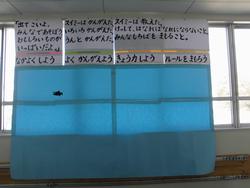 「出てこいよ。
みんなであそぼう。
おもしろいものが
いっぱいだよ。」
スイミーはかんがえた。
いろいろかんがえた。
うんとかんがえた。
スイミーは教えた。
けっして、はなればなれにならないこと。
みんなもちばをまもること。
なかよくしよう
よくかんがえよう
きょう力しよう
ルールをまもろう